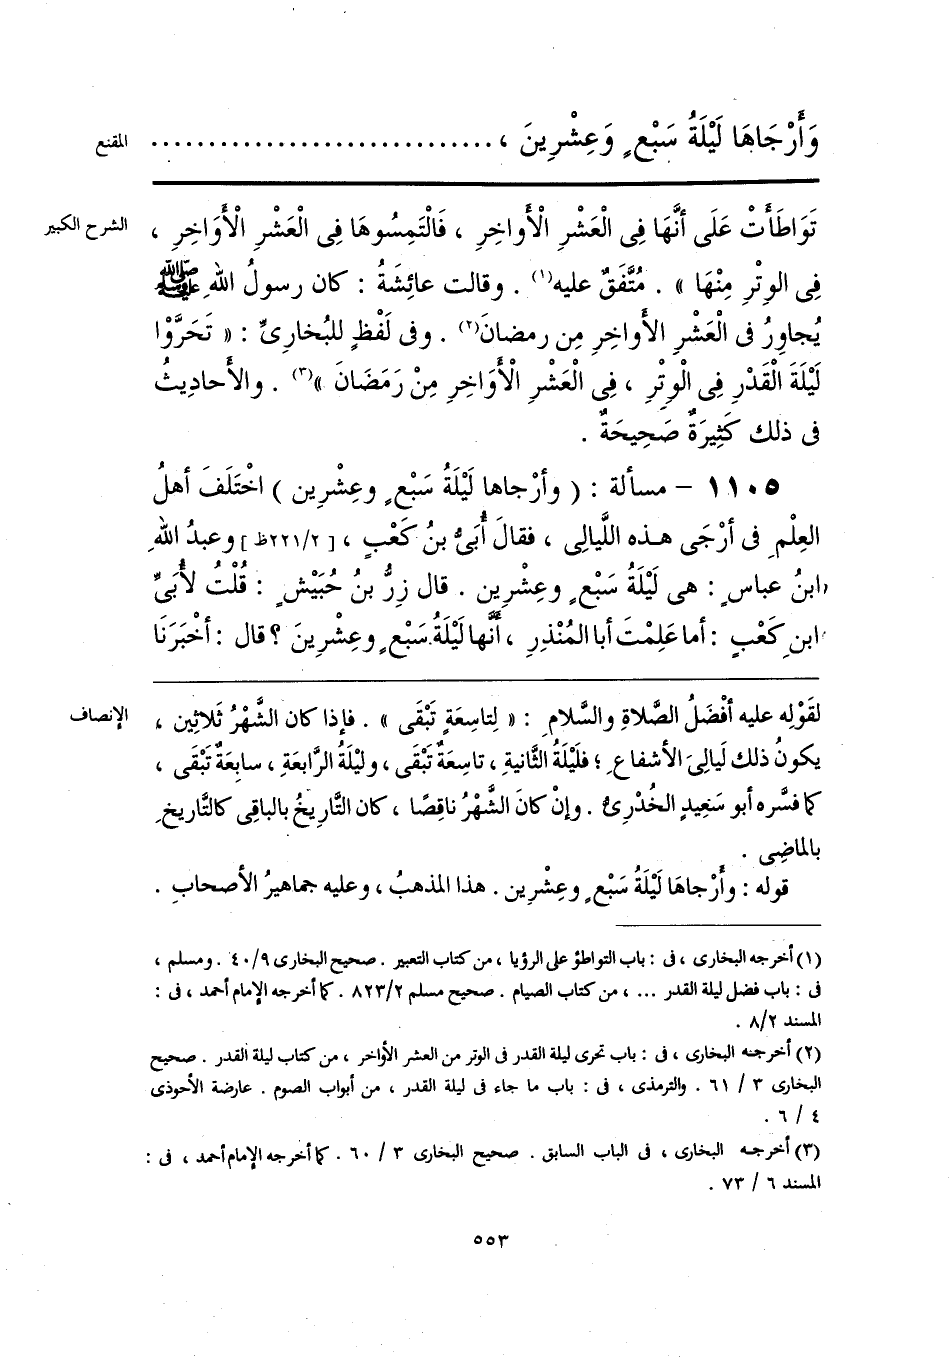 وَأَرْجَاهَا لَيْلَةُ سَبْعٍ وَعِشْرِينَ ، .............................. المقنع
تَوَاطَأَتْ عَلَى أنَّهَا فِى الْعَشْرِ الْأَواخِرِ ، فَالْتَمِسُوهَا فِى الْعَشْرِ الْأَوَاخِرِ ، الشرح الكبير
فِى الوِتْرِ مِنْهَا » . مُتَّفَقٌ عليه(١) . وقالت عائِشَةُ : كان رسولُ اللهِ ﷺ
يُجاوِرُ فى الْعَشْرِ الأَواخِرِ مِن رمضانَ(٢) . وفى لَفْظٍ للبُخارِىِّ : « تَحَرَّوْا
لَيْلَةَ الْقَدْرِ فِى الْوِتْرِ ، فِى الْعَشْرِ الْأَوَاخِرِ مِنْ رَمَضَانَ »(٣) . والأَحادِيثُ
فى ذلك كَثِيرَةٌ صَحِيحَةٌ .
١١٠٥ - مسألة : ( وأرْجاها لَيْلَةُ سَبْعٍ وعِشْرِين ) اخْتَلَفَ أهلُ
العِلْمِ فى أرْجَى هذه اللَّيالِى ، فقالَ أُبَىُّ بنُ كَعْبٍ ، [ ٢٢١/٢ظ ] وعبدُ اللهِ
ابنُ عباسٍ : هى لَيْلَةُ سَبْعٍ وعِشْرِين . قال زِرُّ بنُ حُبَيْشٍ : قُلْتُ لأُبَىِّ
ابنِ كَعْبٍ : أما عَلِمْتَ أبا المُنْذِرِ ، أنَّها لَيْلَةُ سَبْعٍ وعِشْرِينَ ؟ قال : أخْبَرَنَا
لقَوْلِه عليه أفْضَلُ الصَّلاةِ والسَّلامِ : « لِتاسِعَةٍ تَبْقَى » . فإذا كان الشَّهْرُ ثَلاثِين ، الإنصاف
يكونُ ذلك لَيالِىَ الأشفاعِ ؛ فلَيْلَةُ الثَّانيةِ ، تاسِعَةٌ تَبْقَى ، وليْلَةُ الرَّابعَةِ ، سابعَةٌ تَبْقَى ،
كما فسَّره أبو سَعِيدٍ الخُدْرِىُّ . وإنْ كانَ الشَّهْرُ ناقِصًا ، كان التَّارِيخُ بالباقِى كالتَّاريخِ
بالماضِى .
قوله : وأَرْجاهَا لَيْلَةُ سَبْعٍ وعِشْرِين . هذا المذهبُ ، وعليه جماهيرُ الأصحابِ .
(١) أخرجه البخارى ، فى : باب التواطؤ على الرؤيا ، من كتاب التعبير . صحيح البخارى ٤٠/٩ . ومسلم ،
فى : باب فضل ليلة القدر ... ، من كتاب الصيام . صحيح مسلم ٨٢٣/٢ . كما أخرجه الإمام أحمد ، فى :
المسند ٨/٢ .
(٢) أخرجه البخارى ، فى : باب تحرى ليلة القدر فى الوتر من العشر الأواخر ، من كتاب ليلة القدر . صحيح
البخارى ٣ / ٦١ . والترمذى ، فى : باب ما جاء فى ليلة القدر ، من أبواب الصوم . عارضة الأحوذى
٤ / ٦ .
(٣) أخرجه البخارى ، فى الباب السابق . صحيح البخارى ٣ / ٦٠ . كما أخرجه الإمام أحمد ، فى :
المسند ٦ / ٧٣ .
٥٥٣